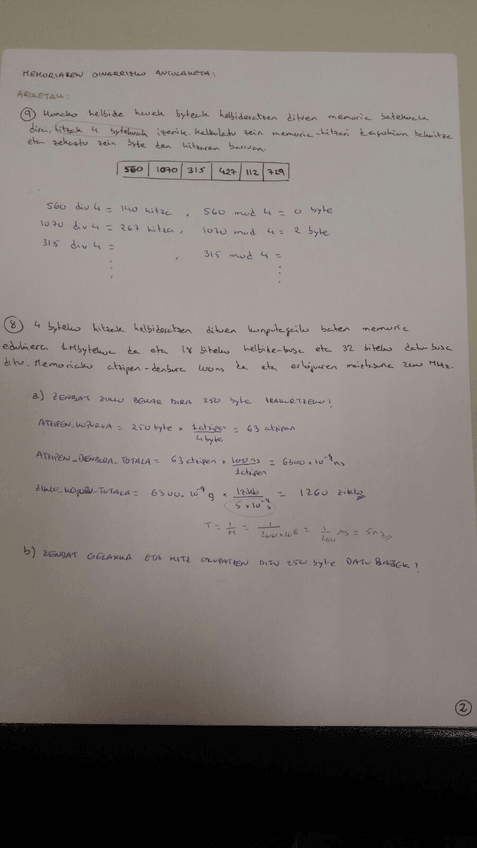 MEMORIAREN OINARRIZKO ANTOLAKETA:
ARIKETAK:
9 Honako helbide hauek byteak helbideratzen dituen memoria batekoak
dira, hitzak 4 bytekoak izanik. Kalkulatu zein memoria-hitzari dagokion bakoitza
eta zehaztu zein byte den hitzaren barruan.
560 1070 315 427 112 729
560 div 4 = 140 hitza , 560 mod 4 = 0 byte
1070 div 4 = 267 hitza , 1070 mod 4 = 2 byte
315 div 4 = , 315 mod 4 =
8 4 byteko hitzak helbideratzen dituen konputagailu baten memoria
edukiera 1Mbytekoa da eta 18 biteko helbide-busa eta 32 biteko datu-busa
ditu. Memoriako atzipen-denbora 100ns da eta erlojuaren maiztasuna 200 MHz.
a) ZENBAT ZIKLO BEHAR DIRA 250 byte IRAKURTZEKO?
ATZIPEN_KOPURUA = 250 byte × 1 atzipen / 4 byte = 63 atzipen
ATZIPEN_DENBORA_TOTALA = 63 atzipen × 100 ns / 1 atzipen = 6300 × 10⁻⁹ s
ZIKLO_KOPURU_TOTALA = 6300 · 10⁻⁹ s × 1 ziklo / 5 × 10⁻⁹ s = 1260 ziklo
T = 1/M = 1/200×10⁶ = 1/200 µs = 5ns
b) ZENBAT GELAXKA ETA HITZ OKUPATZEN DITU 250 byte DATU BATEK?
2